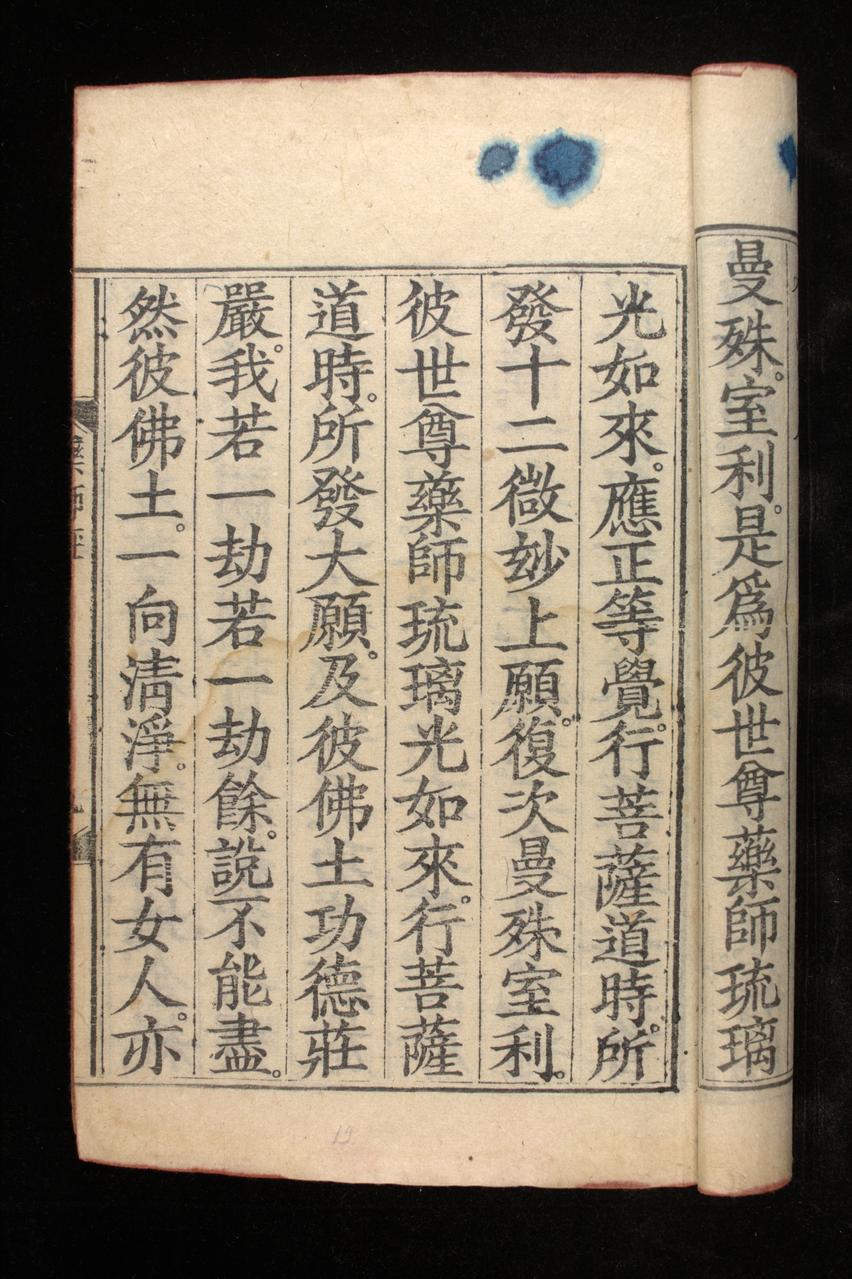 曼殊。室利。是爲彼世尊藥師琉璃
光如來。應正等覺。行菩薩道時。所
發十二微妙上願。復次曼殊室利。
彼世尊藥師琉璃光如來。行菩薩
道時。所發大願。及彼佛土功德莊
嚴。我若一劫若一劫餘。說不能盡。
然彼佛土。一向淸淨。無有女人。亦
藥師經
19